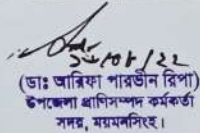 (ডাঃ আরিফা পারভীন রিপা)
উপজেলা প্রাণিসম্পদ কর্মকর্তা
সদর, ময়মনসিংহ।